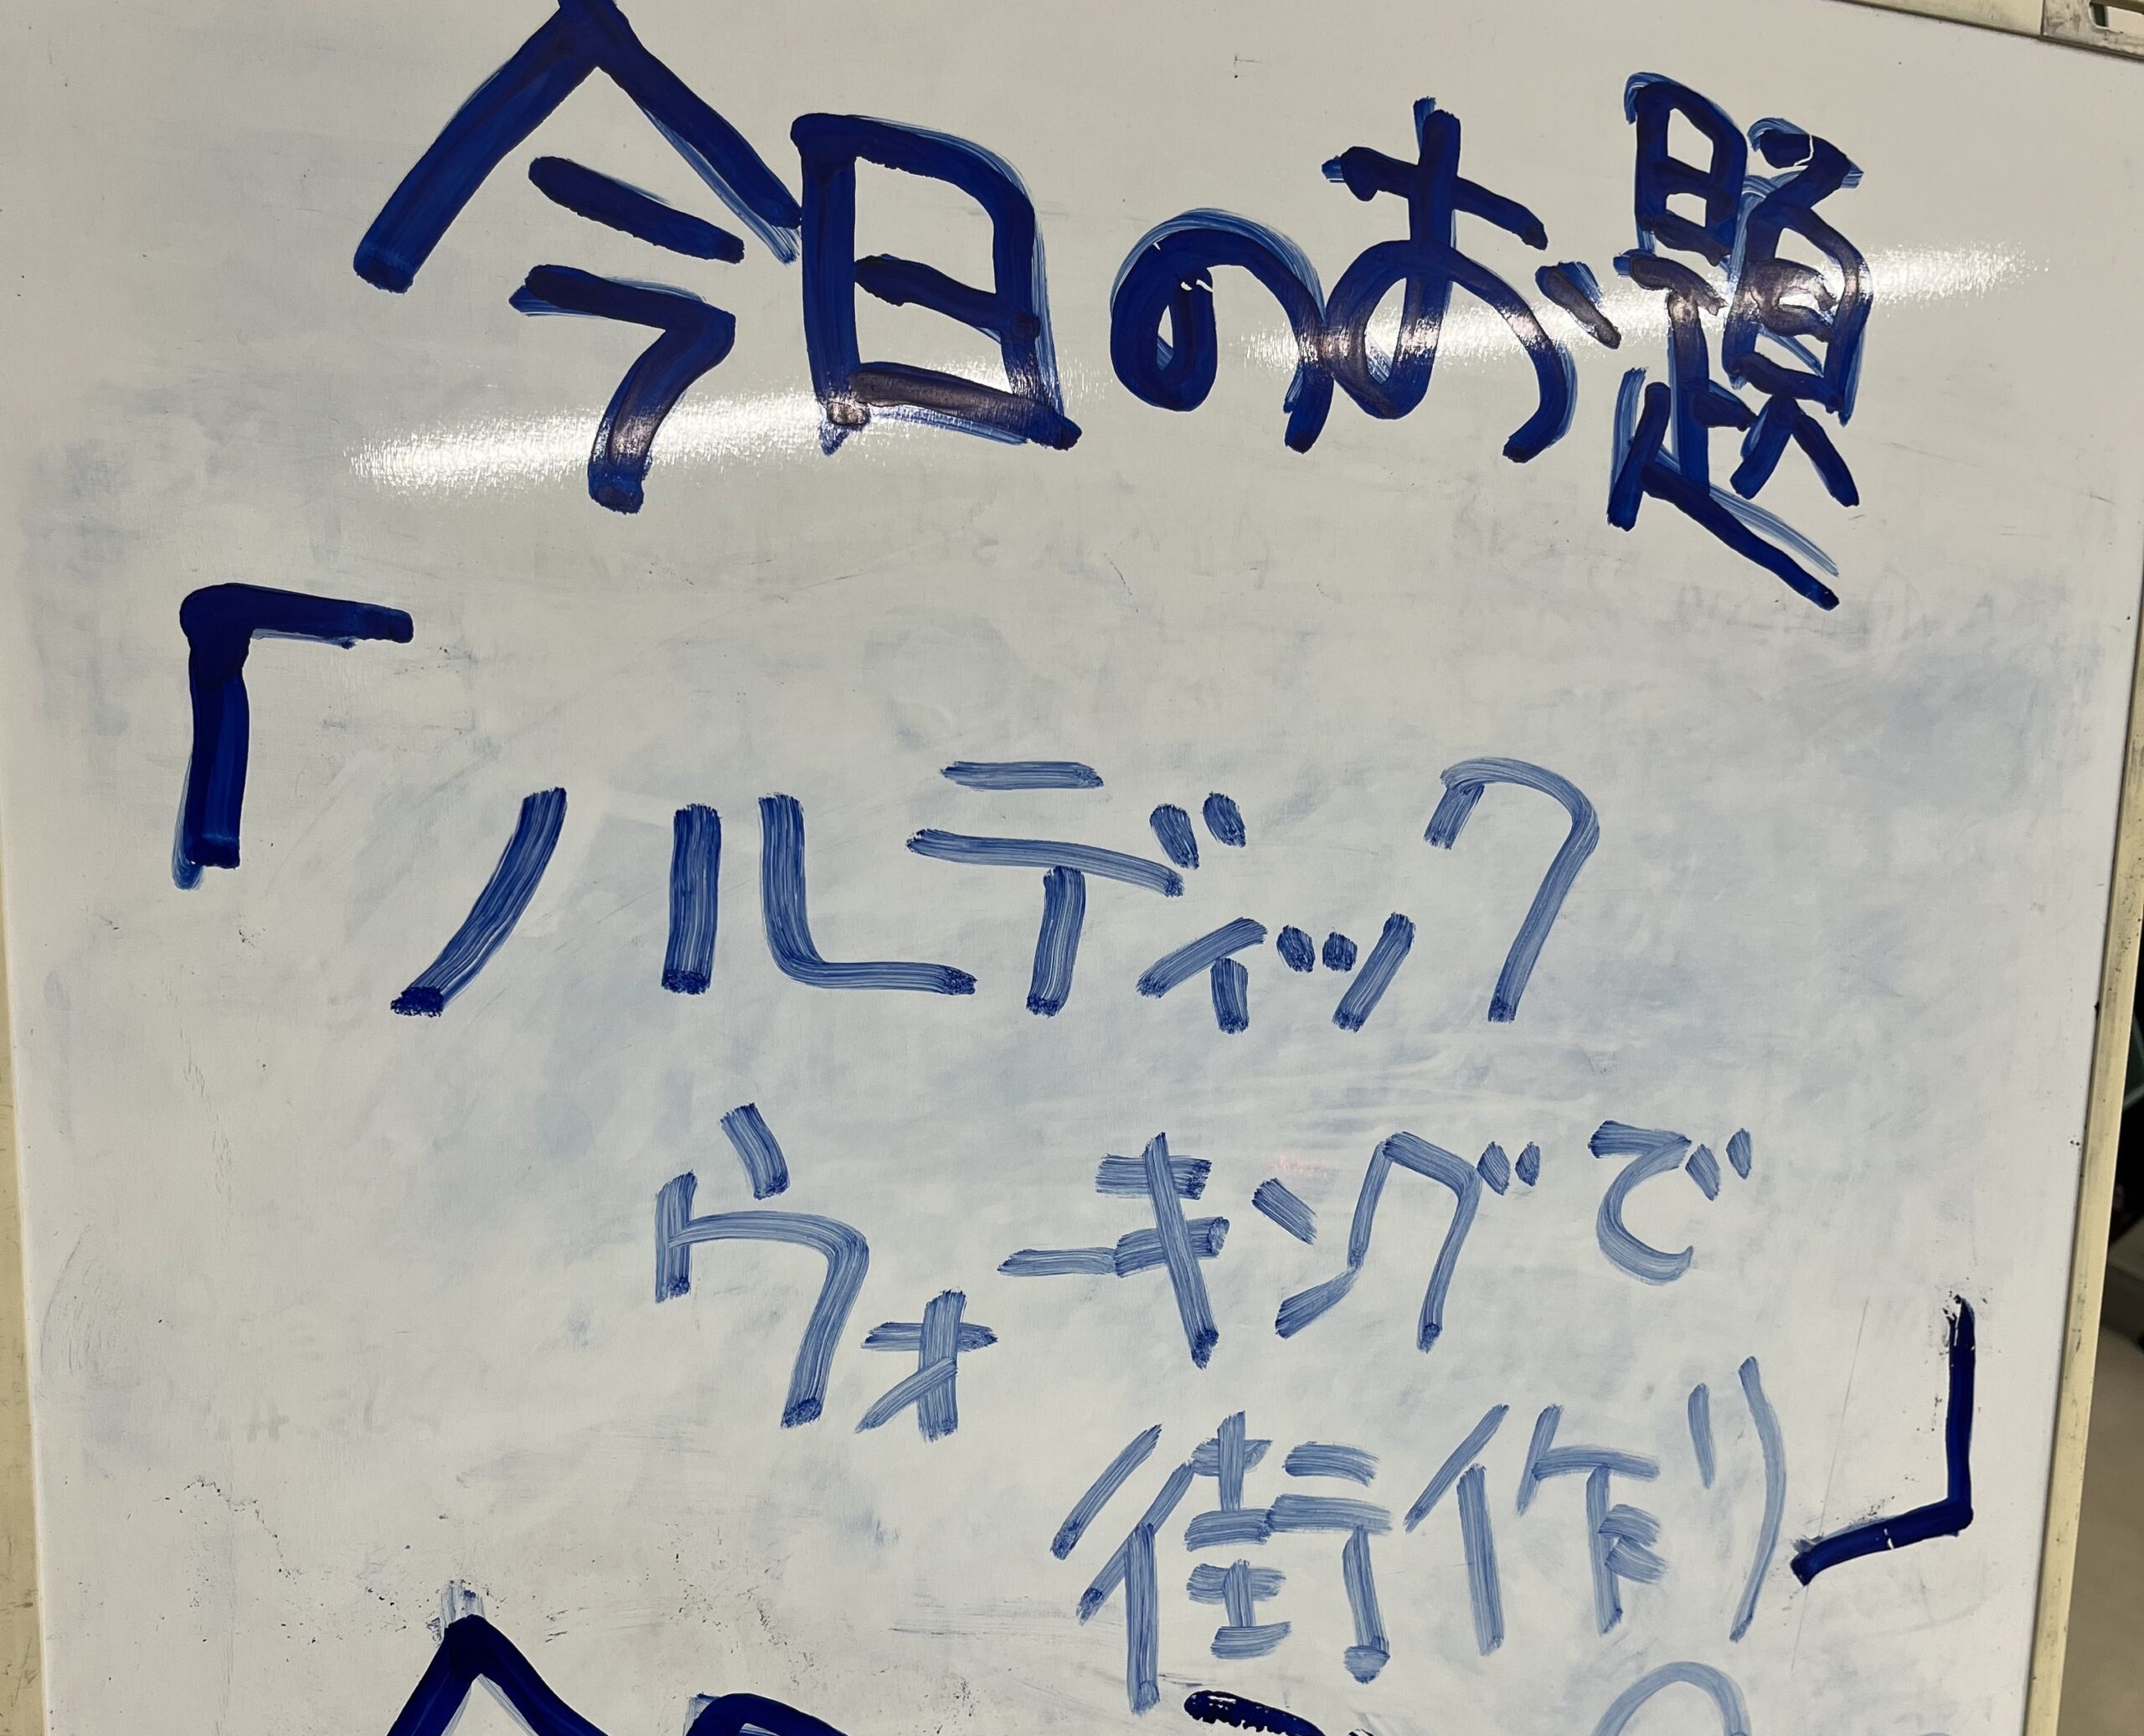 今日のお題
「ノルディック
ウォーキングで
街作り」